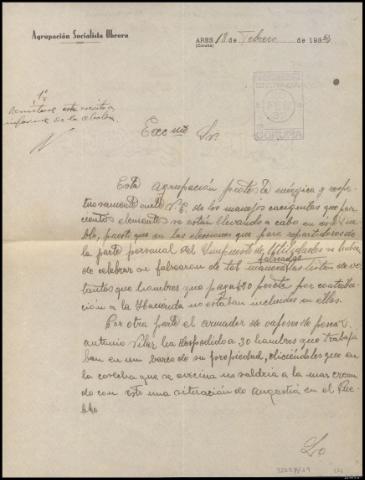 Agrupación Socialista Obrera
ARES 18 de Febrero de 193
(Coruña)
1º
informe de la Alcaldía
CORUÑA
Excmo Sr.
Esta Agrupación protesta enérgica y respe
tuosamente ante V.E. de los manejos caciquiles que por
ciertos elementos se están llevando a cabo en este Pue
blo, puesto que en las elecciones que para repartidores de
la parte personal del Impuesto de Utilidades se había
de celebrar se falsearon de tal manera las listas de vo
tantes que hombres que pagaban peseta por contribu
ción a la Hacienda no estaban incluidos en ellas.
Por otra parte el armador de vapores de pesca
Antonio Vilar ha despedido a 30 hombres que trabaja
ban en un barco de su propiedad, diciéndoles que en
la cosecha que se avecina no saldría a la mar crean
do con esto una situación de angustia en el Pue
blo
Lo